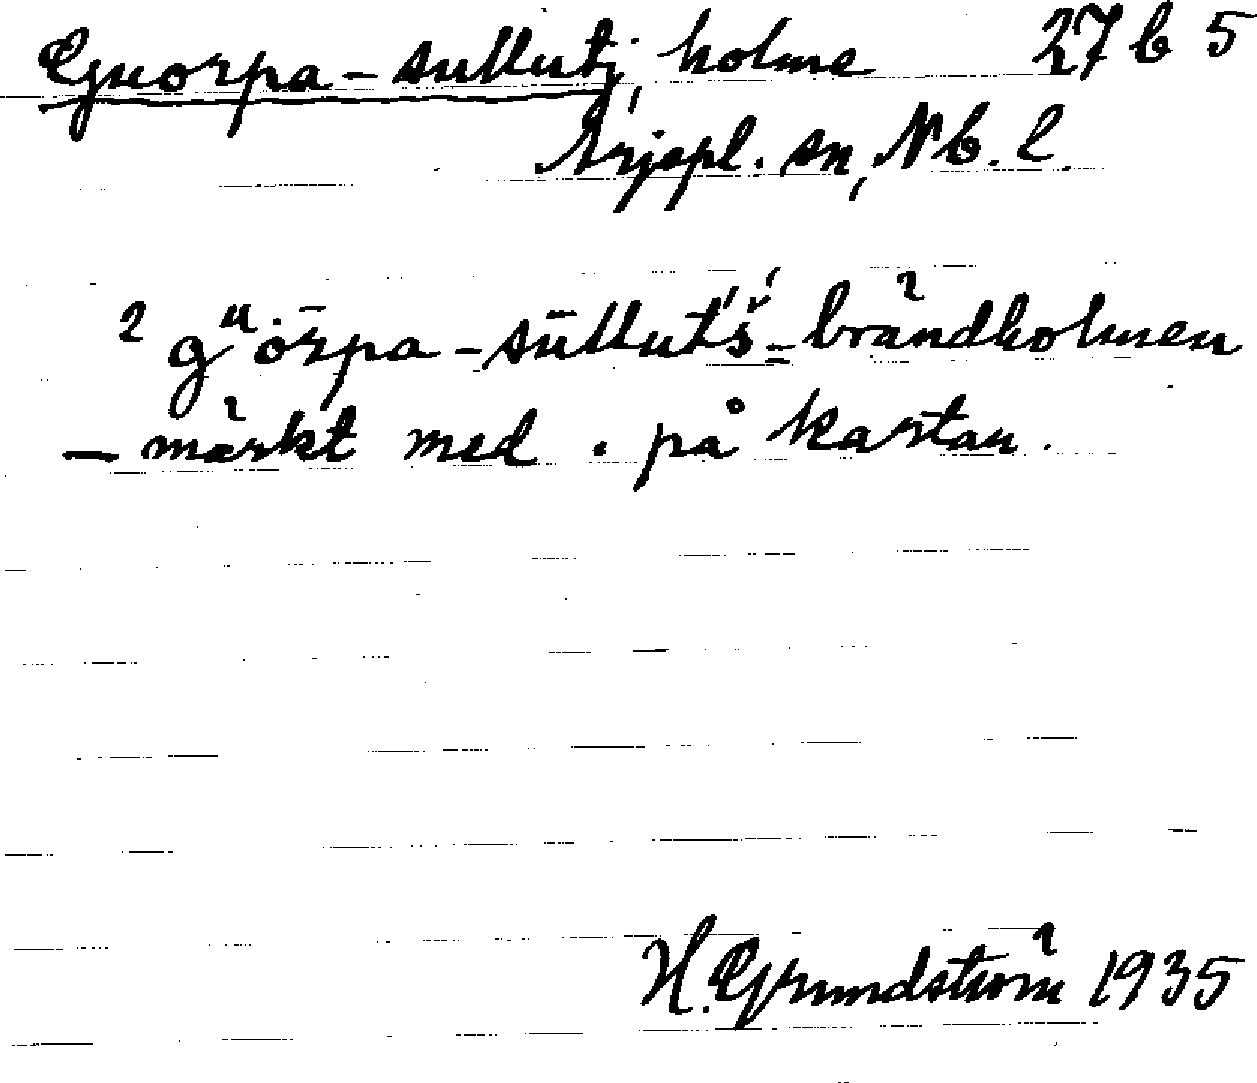 Guorpa-sullutj, holme 27 b 5
Arjepl. sn, Nb. l.
² gᵘȯr̄pa-sūllut́š́ = brändholmen
— märkt med . på kartan.
H. Grundström 1935